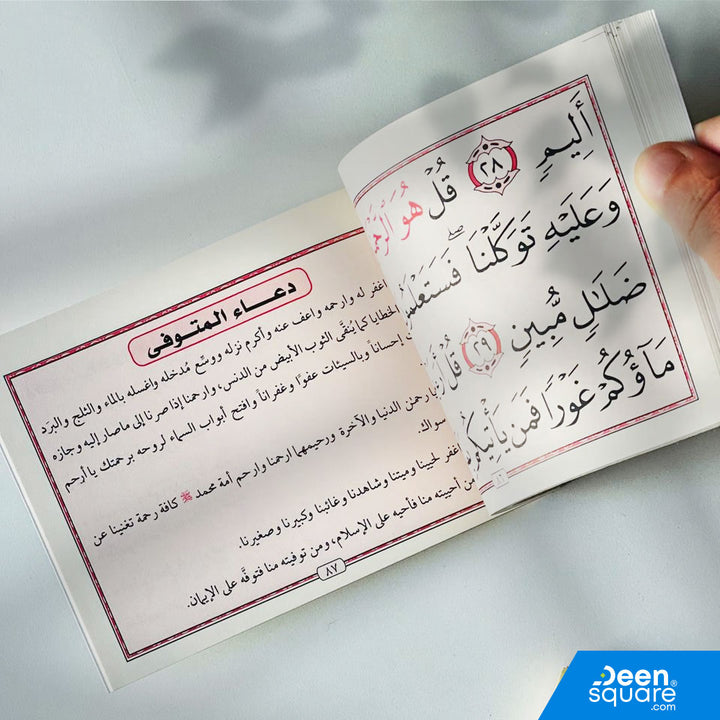 أَلِيمٍ ٢٨ قُلْ هُوَ الرَّحْمَ
وَعَلَيْهِ تَوَكَّلْنَا ۖ فَسَتَعْلَمُ
ضَلَالٍ مُّبِينٍ ٢٩ قُلْ أَرَ
مَآؤُكُمْ غَوْرًا فَمَن يَأْتِيكُ
دعاء المتوفى
اغفر له وارحمه واعف عنه وأكرم نزله ووسّع مُدخله واغسله بالماء والثلج والبرَد
الخطايا كما يُنقَّى الثوب الأبيض من الدنس، وارحمنا إذا صرنا إلى ما صار إليه وجازه
إحساناً وبالسيئات عفوًا وغفراناً وافتح أبواب السماء لروحه برحمتك يا أرحم
رحمن الدنيا والآخرة ورحيمهما ارحمنا وارحم أمة محمد ﷺ كافة رحمة تغنينا عن
سواك.
غفر لحينا وميتنا وشاهدنا وغائبنا وكبيرنا وصغيرنا.
من أحييته منا فأحيه على الإسلام، ومن توفيته منا فتوفّه على الإيمان.
٨٧
Deen
square®
.com